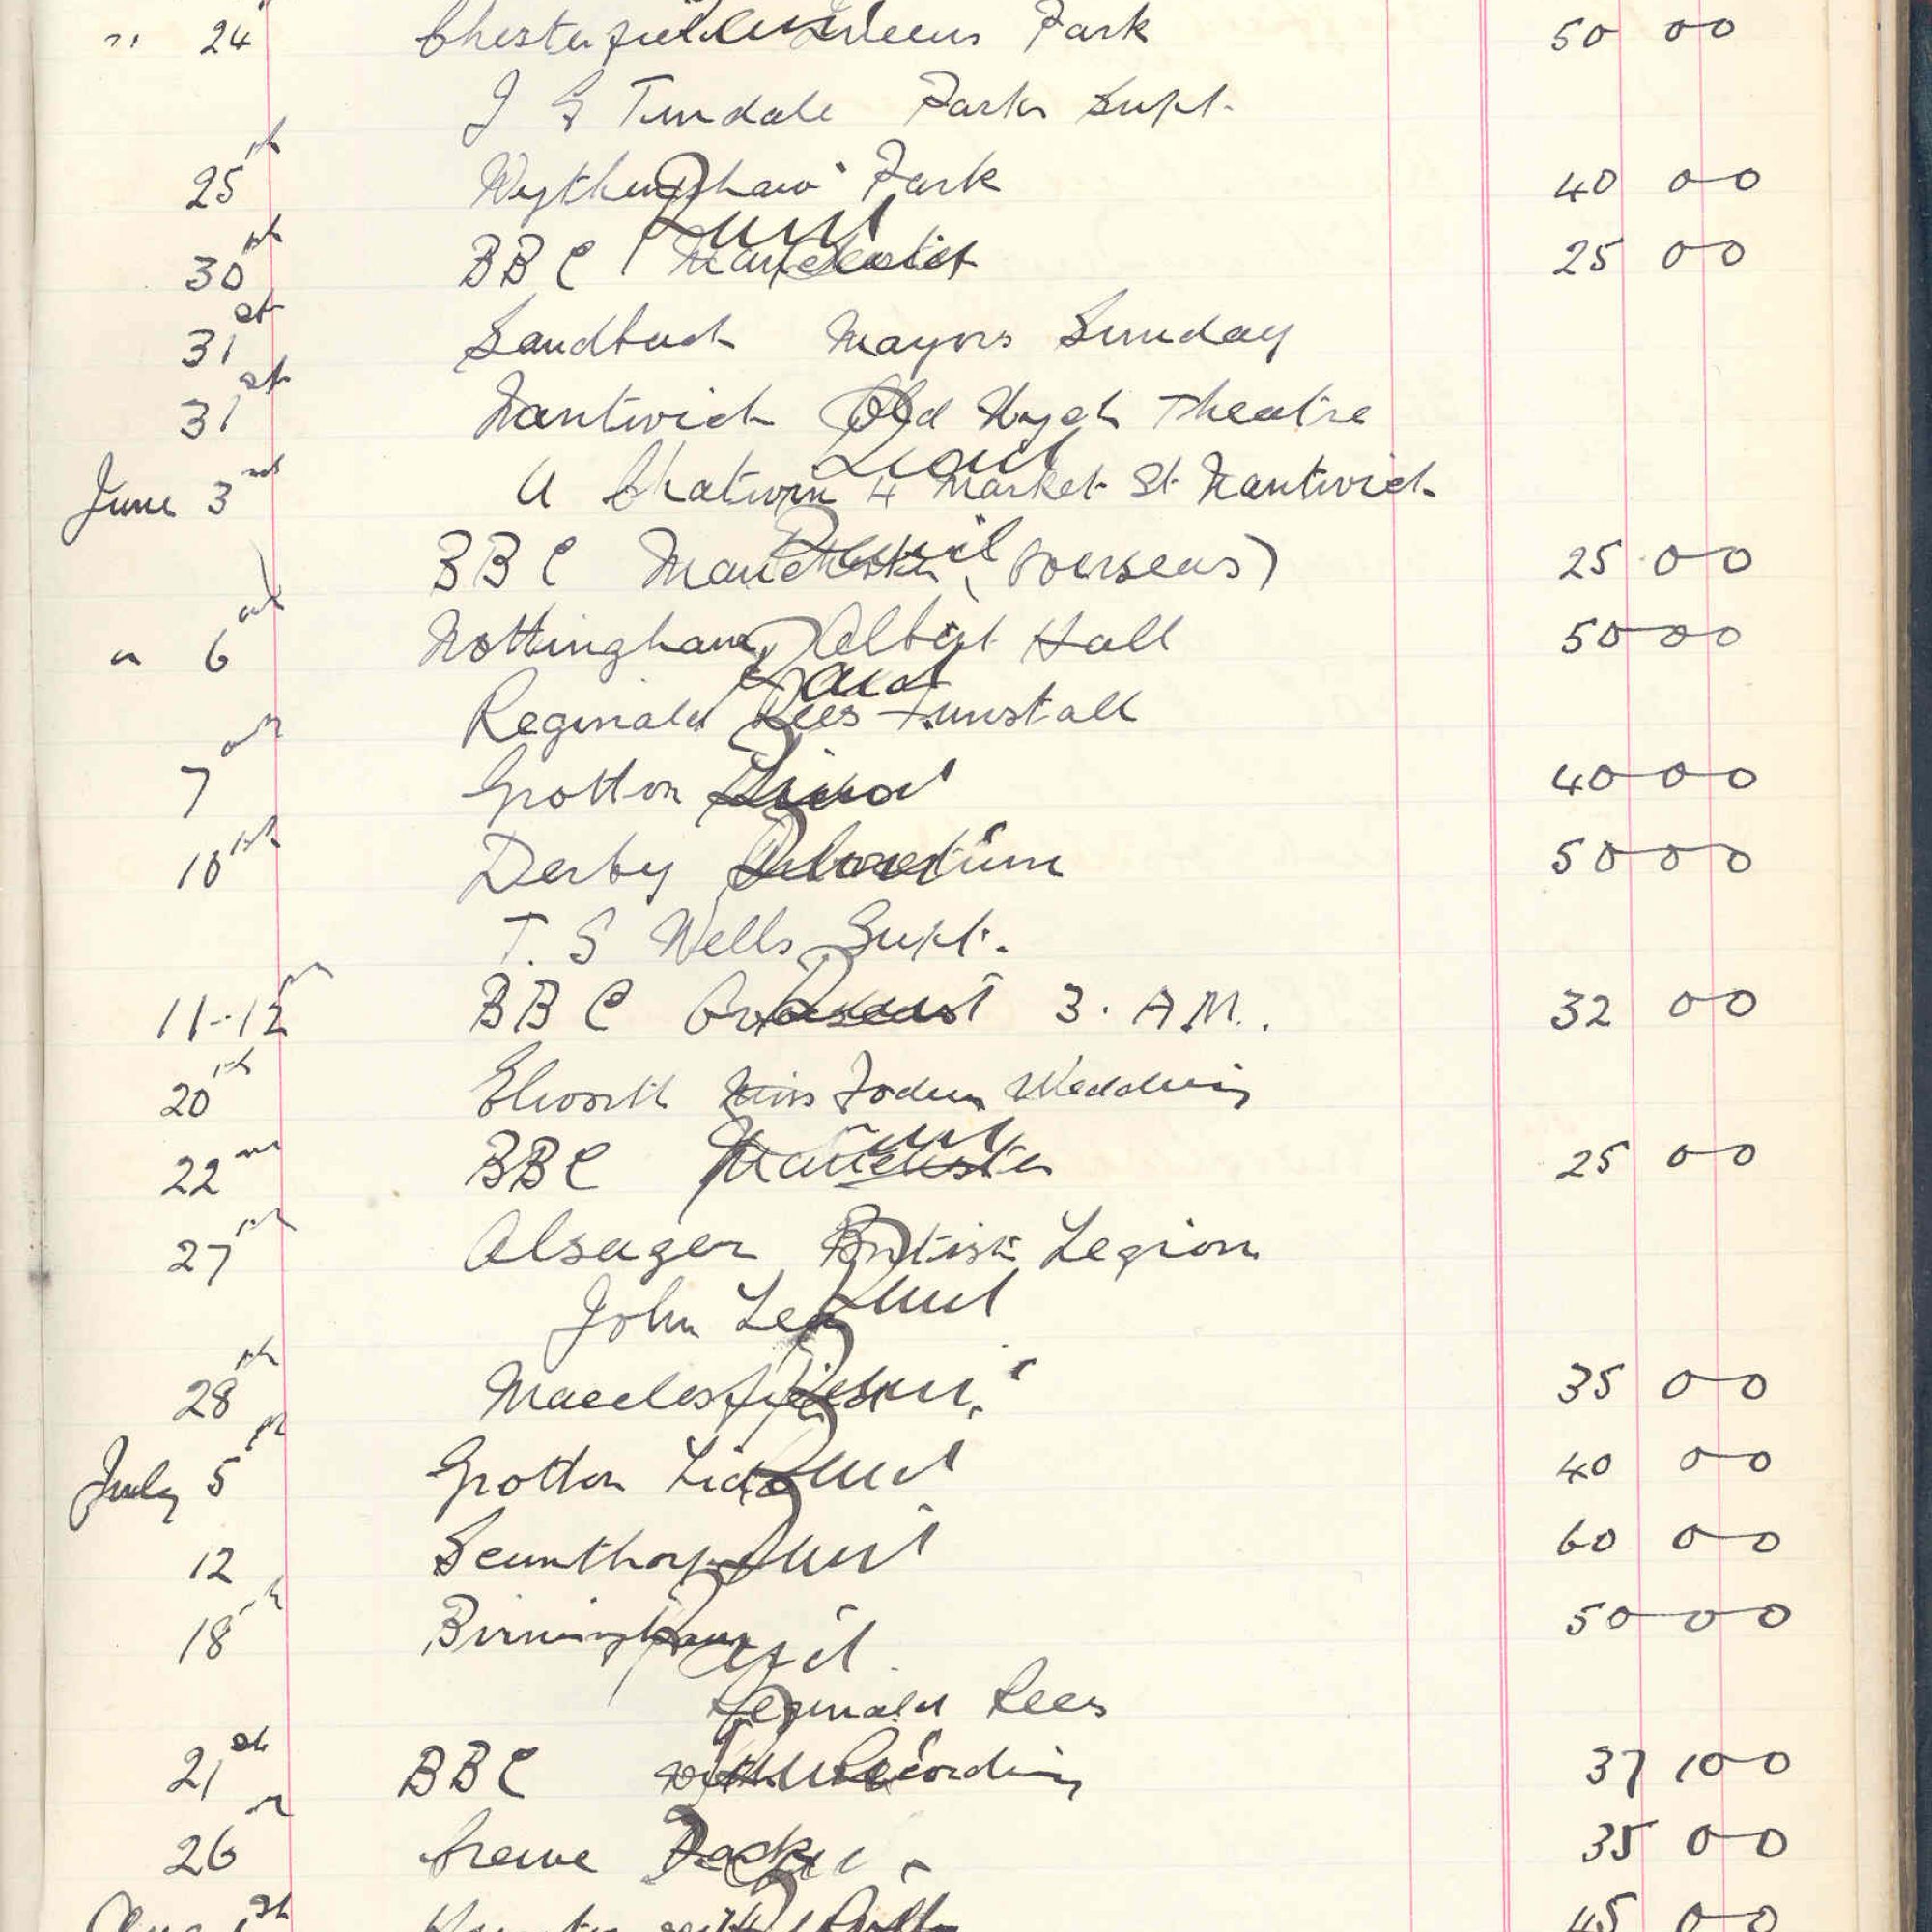 " 24 Chesterfield Queens Park 50 0 0
J G Tindale Parks Supt.
25th Wythenshaw Park 40 0 0
Paid
30th BBC Manchester 25 0 0
31st Sandbach Mayors Sunday
31st Nantwich Old Wych Theatre
Paid
June 3rd A Chatwin 4 Market St Nantwich
Paid
BBC Manchester (Overseas) 25 0 0
" 6th Nottingham Albert Hall 50 0 0
Paid
Reginald Rees Tunstall
7th Grotton Paid 40 0 0
10th Derby Arboretum 50 0 0
T. S Wells Supt.
11-12th BBC Overseas 3. A.M. 32 0 0
20th Elworth Miss Foden Wedding
22nd BBC Manchester 25 0 0
27th Alsager British Legion
Paid
John Lea
28th Macclesfield 35 0 0
July 5th Grotton Lido Paid 40 0 0
12 Scunthorpe Paid 60 0 0
18th Birmingham Paid 50 0 0
Reginald Rees
21st BBC Recording 37 10 0
26th Crewe 35 0 0
1st 45 0 0